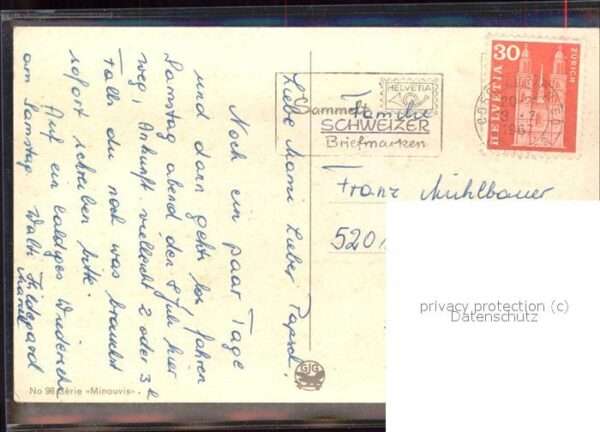 Liebe Mami Lieber Papsch
Noch ein paar Tage
und dann gehts los fahren
Samstag abend den 8 Juli hier
weg, Ankunft vielleicht 2 oder 3 h
Falls du noch was brauchst
sofort schreiben bitte.
Auf ein baldiges Wiedersehen
am Samstag Walti Hildegard
Marcel
HELVETIA
Sammelt
SCHWEIZER
Briefmarken
30
HELVETIA
ZÜRICH
Familie
Franz Mühlbauer
5201
privacy protection (c)
Datenschutz
GJG
No 98 Série «Minouvis»